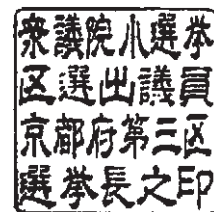 衆議院小選挙
区選出議員
京都府第三区
選挙長之印